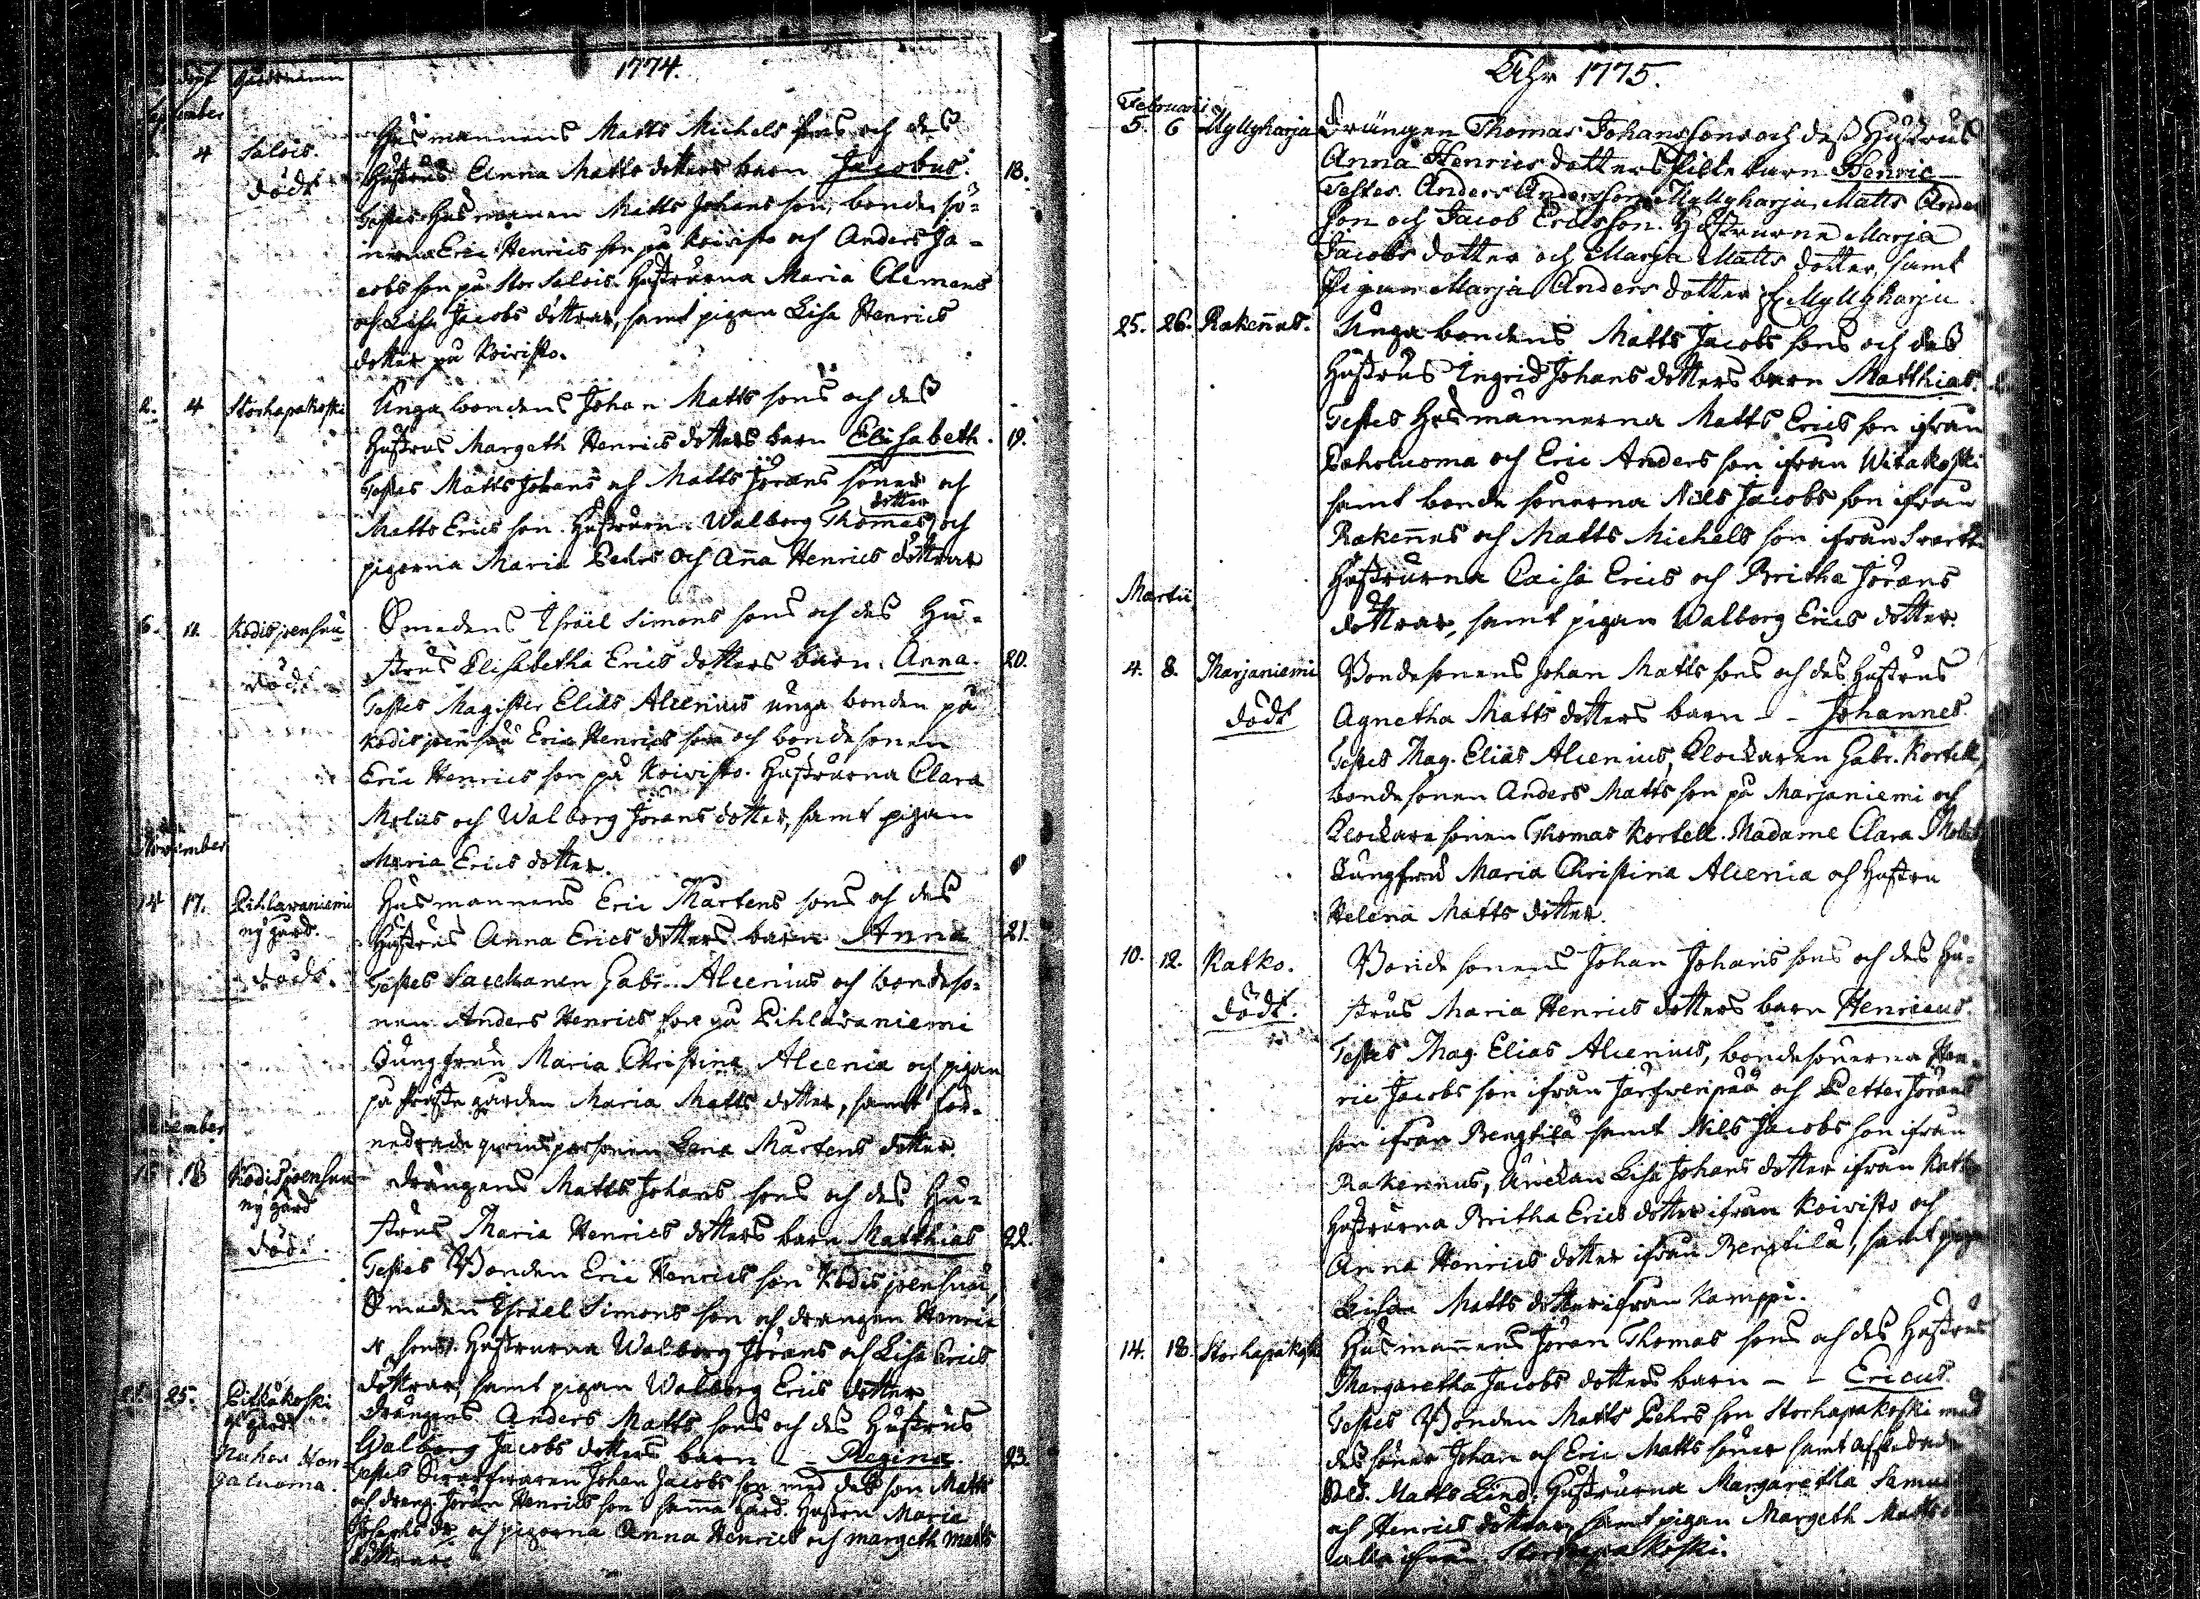 1774.
September
4 Salois. Husmannens Matts Michels sons och des
dödt Hustrus Anna Matts dotters barn Jacobus. 18.
Testes Husmannen Matts Johans son, bonde sö-
nerna Eric Henrics son på Koivisto och Anders Ja-
cobs son på Stor Salois. Hustrurna Maria Clemens
och Lisa Jacobs döttrar, samt pigan Lisa Henrics
dotter på Koivisto.
2. 4 Storhapakoski Unga bondens Johan Matts sons och des
Hustrus Margeth Henrics dotters barn Elisabeth. 19.
Testes Matts Johans och Matts Jörans söner och
Matts Erics son. Hustrun Walborg Thomas dotter och
pigorna Maria Pehrs och Anna Henrics döttrar
6. 11. Kodisjoensuu Smedens Israel Simons sons och des Hu-
dödt strus Elisabetha Erics dotters barn Anna. 20.
Testes Magister Elias Alcenius unga bonden på
Kodisjoensuu Eric Henrics son och bondesonen
Eric Henrics son på Koivisto. Hustrurna Clara
Moliis och Walborg Jörans dotter, samt pigan
Maria Erics dotter.
November
14 17. Pihlavaniemi Husmannens Eric Mårtens sons och des
ny gård. Hustrus Anna Erics dotters barn Anna 21.
dödt. Testes Gabr. Alcenius och bondeso-
nen Anders Henrics son på Pihlavaniemi
Jungfrun Maria Christina Alcenia och pigan
på prästegården Maria Matts dotter, samt för-
nedrade qvinspersonen Lena Mårtens dotter
December
15 18 Kodisjoensuu Drängens Matts Johans sons och des Hu-
ny gård strus Maria Henrics dotters barn Matthias 22.
dödt. Testes Bonden Eric Henrics son Kodisjoensuu,
Smeden Israel Simons son och drängen Henric
N. son. Hustrurna Walborg Jörans och Lisa Erics
döttrar, samt pigan Walborg Erics dotter
21. 25. Pitkäkoski Drängens Anders Matts sons och des Hustrus
Walborg Jacobs dotters barn - - Regina 23.
Testes Johan Jacobs son med des son Matts
och dräng. Jöran Henrics son samma gård. Hustru Maria
Josephs dr. och pigorna Anna Henrics och Margeth Matts
döttrar.
Åhr 1775.
Februarii
5. 6 Myllyharja Drängen Thomas Johanssons och dess Hustrus
Anna Henrics dotters Pilte barn Henric
Testes. Anders Andersson Myllyharja, Matts Anders
son och Jacob Ericsson. Hustrurne Marja
Jacobs dotter och Marja Matts dotter, samt
Pigan Marja Anders dotter Myllyharju
25. 26. Rakennus. Unga bondens Matts Jacobs sons och des
Hustrus Ingrid Johans dotters barn Matthias.
Testes Husmännerna Matts Erics son ifrån
Paholuoma och Eric Anders son ifrån Witakoski
samt bonde sönerna Nils Jacobs son ifrån
Rakennus och Matts Michels son ifrån
Hustrurna Caisa Erics och Britha Jörans
Martii
döttrar, samt pigan Walborg Erics dotter.
4. 8. Marjaniemi Bondesonens Johan Matts sons och des Hustrus
dödt Agnetha Matts dotters barn - - Johannes.
Testes Mag. Elias Alcenius, Klockaren Gabr. Kortell,
bondesonen Anders Matts son på Marjaniemi och
Klockare sonen Thomas Kortell. Madame Clara
Jungfru Maria Christina Alcenia och Hustru
Helena Matts dotter.
10. 12. Katko. Bonde sonens Johan Johans sons och des Hu-
dödt. strus Maria Henrics dotters barn Henricus
Testes Mag. Elias Alcenius, bondesönerna Hen-
ric Jacobs son ifrån Järfvenpää och Petter Jörans
son ifrån Bengtilä samt Nils Jacobs son ifrån
Rakennus, Änckan Lisa Johans dotter ifrån Katko
Hustrurna Britha Erics dotter ifrån Koivisto och
Anna Henrics dotter ifrån Bengtilä, samt pigan
Lisa Matts dotter ifrån Kamppi.
14. 18. Storhapakoski Husmannens Jöran Thomas sons och des Hustrus
Margaretha Jacobs dotters barn - - Ericus.
Testes Bonden Matts Pehrs son Storhapakoski med
des söner Johan och Eric Matts söner samt afskedade
Sold. Matts Lind. Hustrurna Margaretha
och Henrics döttrar, samt pigan Margeth Matts
alla ifrån Storhapakoski.